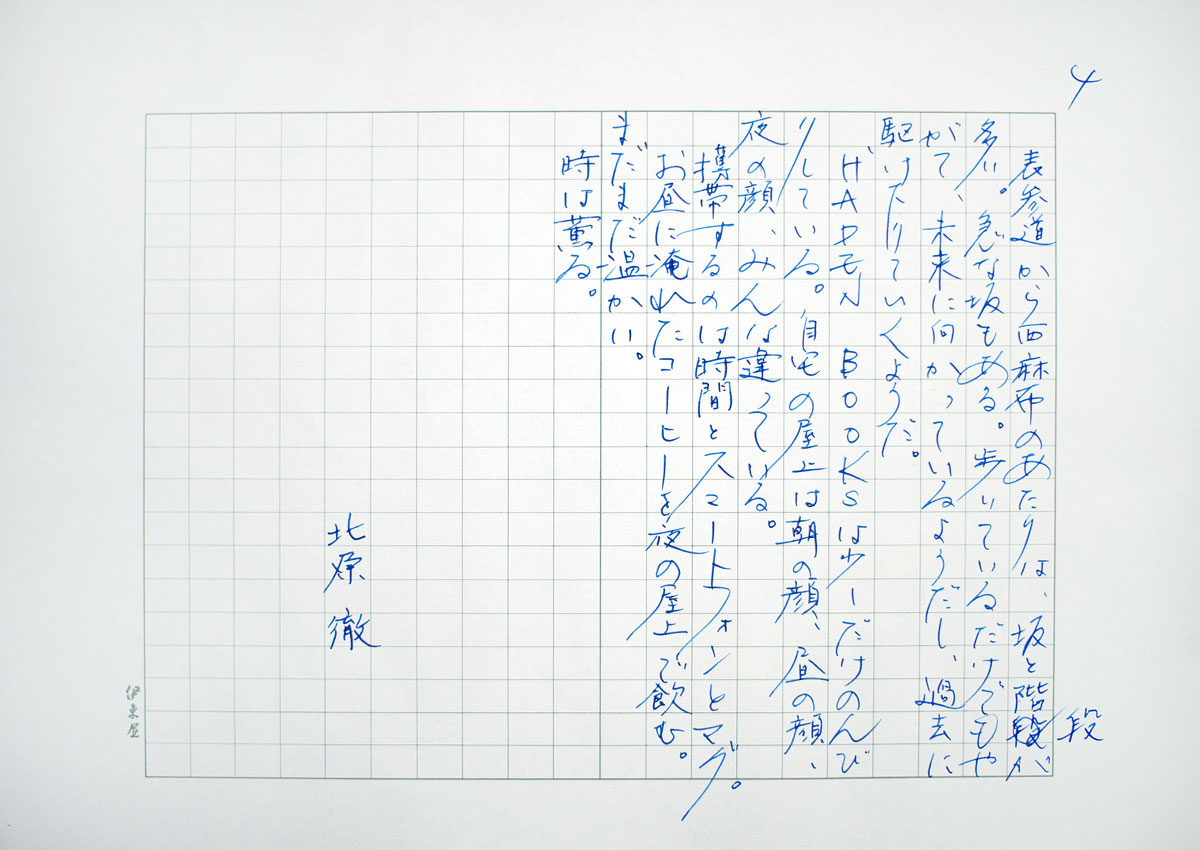 4
表参道から西麻布のあたりは、坂と階段が
段
多い。急な坂もある。歩いているだけでもや
がて、未来に向かっているようだし、過去に
駆けたりていくようだ。
HADEN BOOKSは少しだけのんび
りしている。自宅の屋上は朝の顔、昼の顔、
夜の顔、みんな違っている。
携帯するのは時間とスマートフォンとマグ。
お昼に淹れたコーヒーを夜の屋上で飲む。
まだまだ温かい。
時は薫る。
北原徹
伊東屋